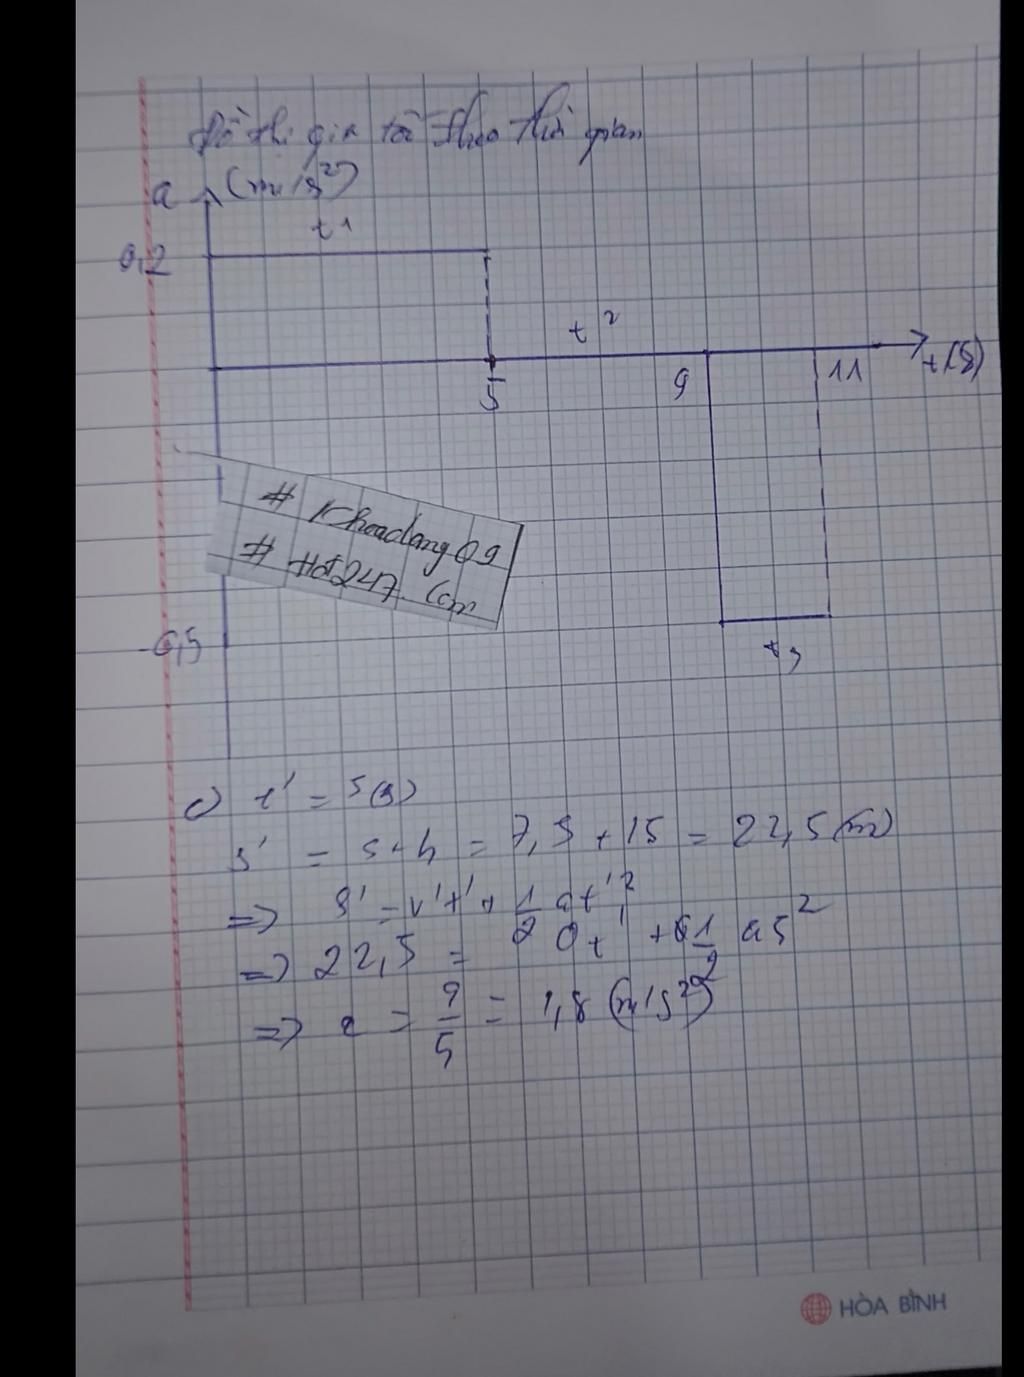 Đồ thị gia tốc theo thời gian
a (m/s²)
t1
0,2
t2
5
9
11
t(s)
# Khoadang09
# Hot247.com
-0,5
t3
c) t' = 5(s)
s' = s+h = 7,5 + 15 = 22,5 (m)
=> s' = v't' + 1/2 at'²
=> 22,5 = 0t' + 1/2 a5²
=> a = 9/5 = 1,8 (m/s²)
HÒA BÌNH